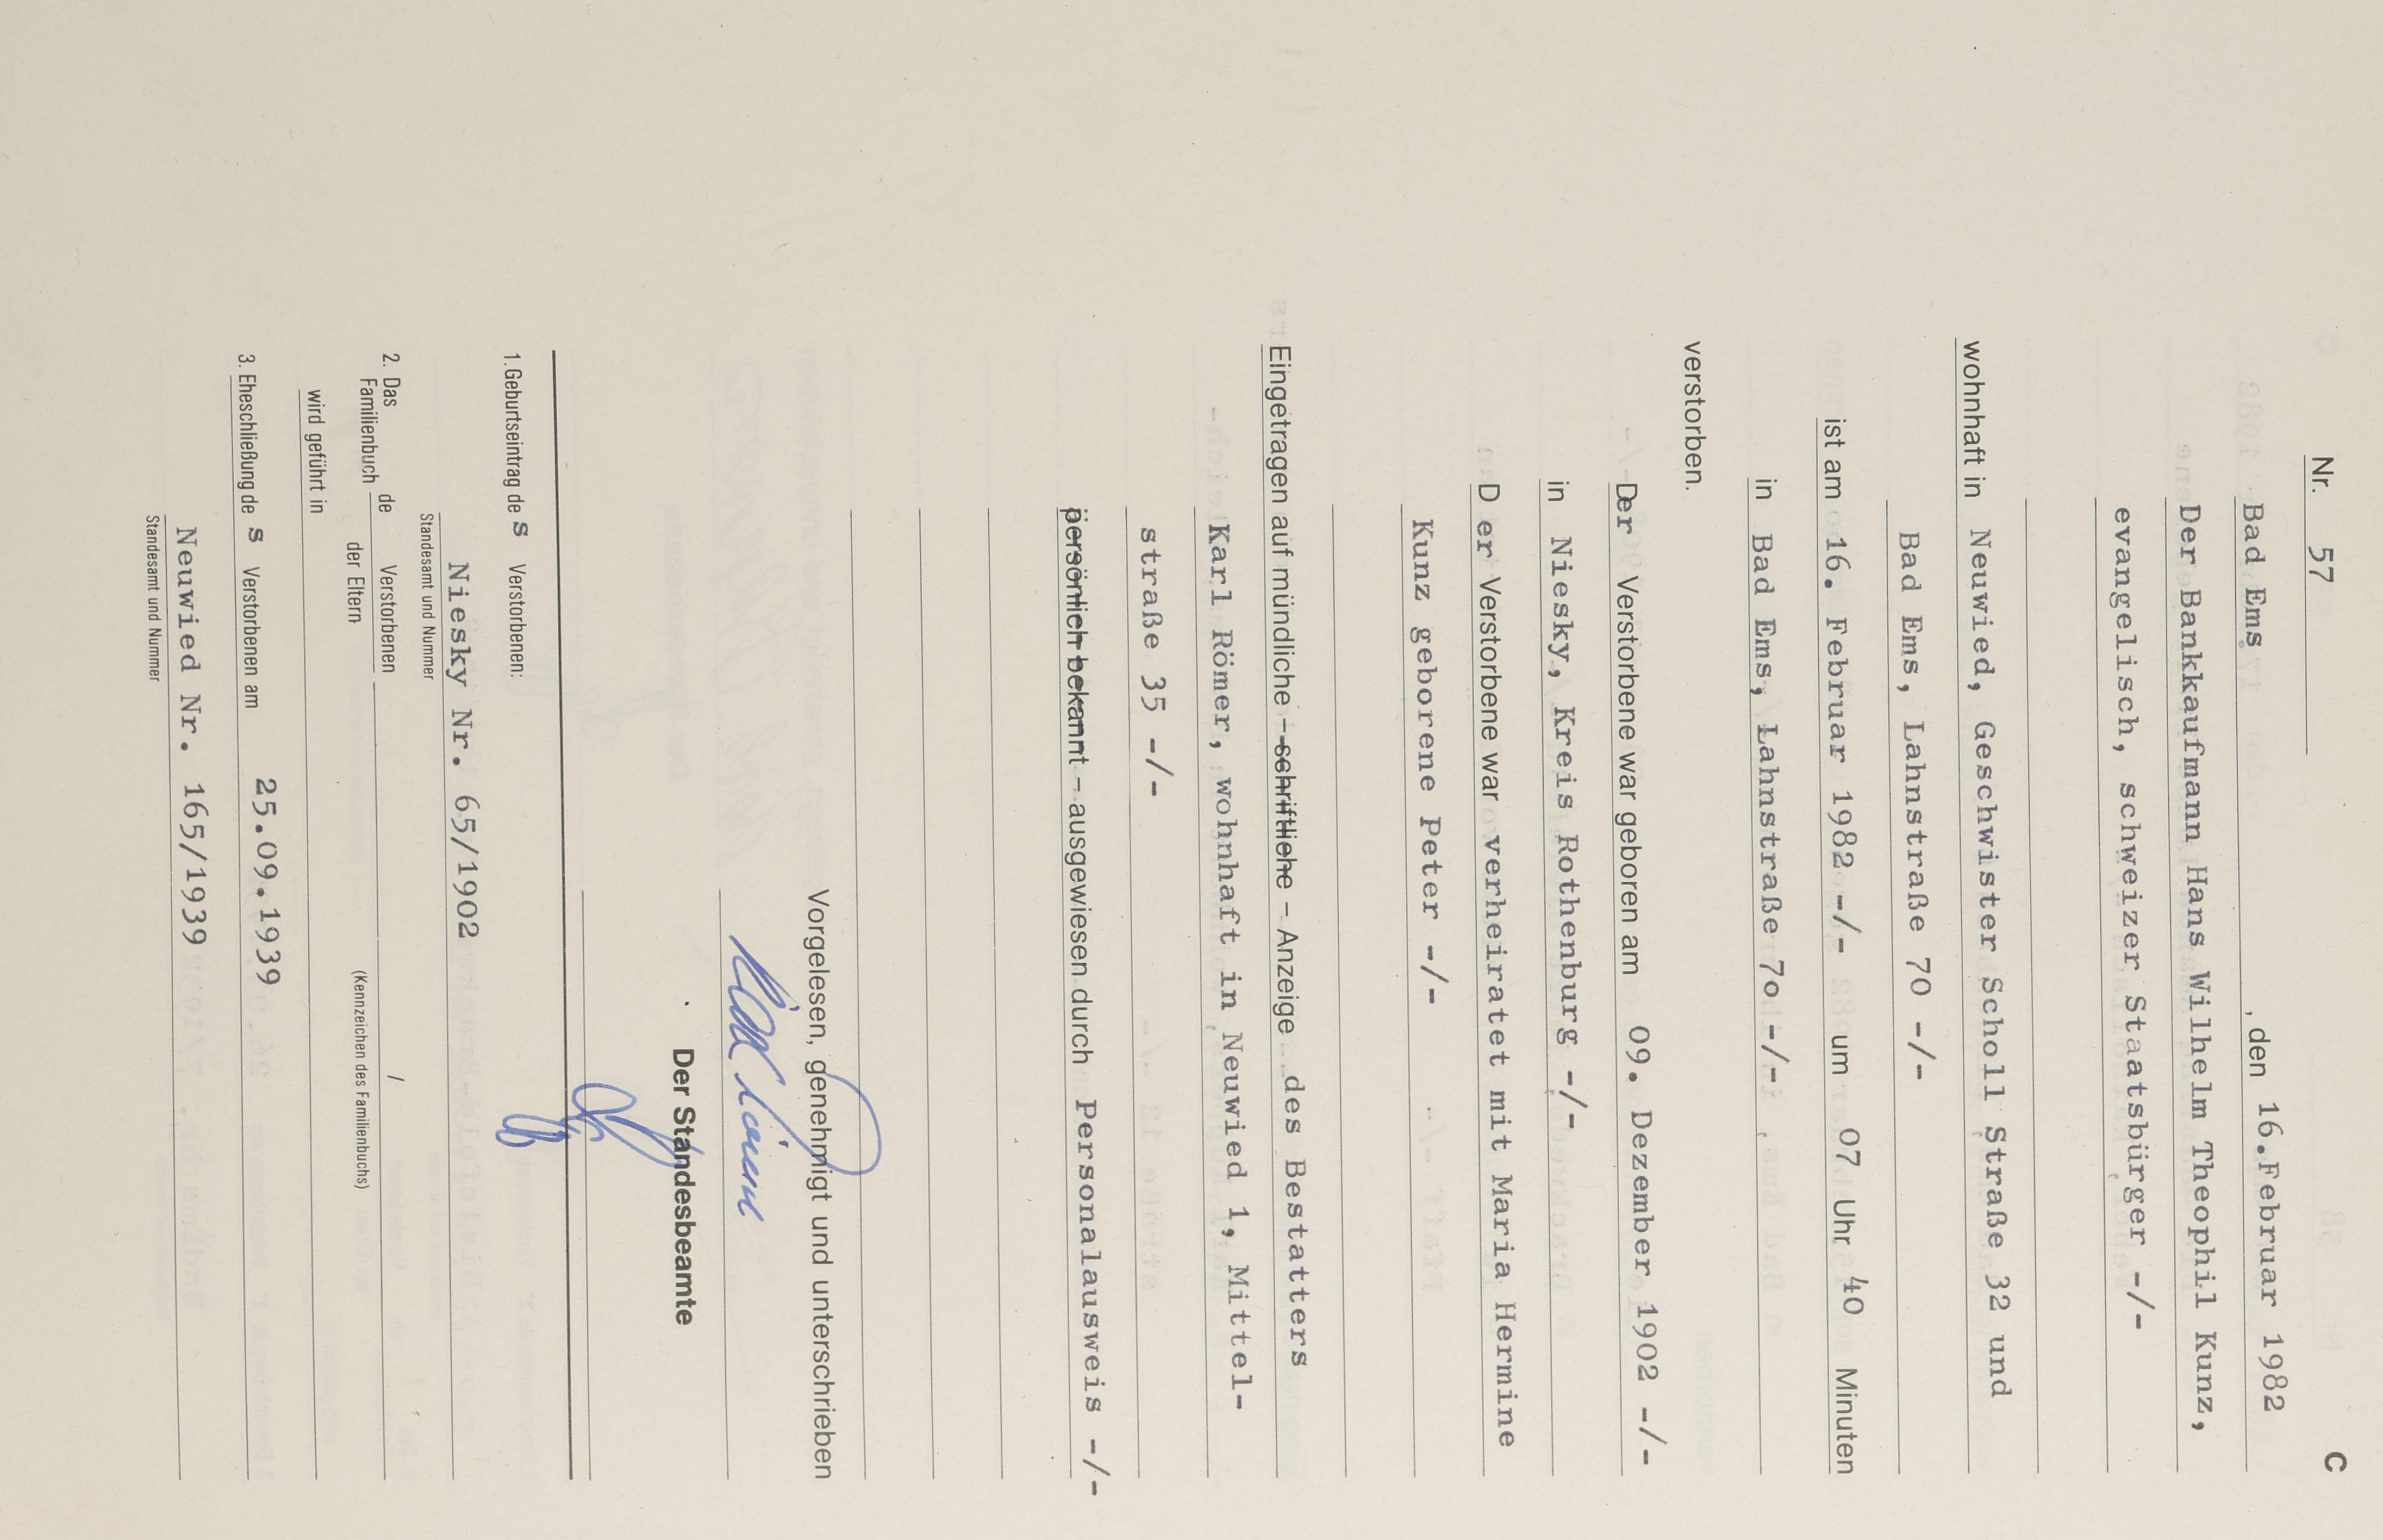 C
Nr. 57
Bad Ems, den 16.Februar 1982
Der Bankkaufmann Hans Wilhelm Theophil Kunz,
evangelisch, schweizer Staatsbürger -/-
wohnhaft in Neuwied, Geschwister Scholl Straße 32 und
Bad Ems, Lahnstraße 70 -/-
ist am 16. Februar 1982 -/- um 07 Uhr 40 Minuten
in Bad Ems, Lahnstraße 7o -/-
verstorben.
Der Verstorbene war geboren am 09. Dezember 1902 -/-
in Niesky, Kreis Rothenburg -/-
D er Verstorbene war verheiratet mit Maria Hermine
Kunz geborene Peter -/-
Eingetragen auf mündliche – schriftliche – Anzeige des Bestatters
Karl Römer, wohnhaft in Neuwied 1, Mittel-
straße 35 -/-
persönlich bekannt – ausgewiesen durch Personalausweis -/-
Vorgelesen, genehmigt und unterschrieben
Karl Römer
Der Standesbeamte
1. Geburtseintrag de s Verstorbenen:
Niesky Nr. 65/1902
Standesamt und Nummer
2. Das Familienbuch de Verstorbenen /
der Eltern (Kennzeichen des Familienbuchs)
wird geführt in
3. Eheschließung de s Verstorbenen am 25.09.1939
Neuwied Nr. 165/1939
Standesamt und Nummer